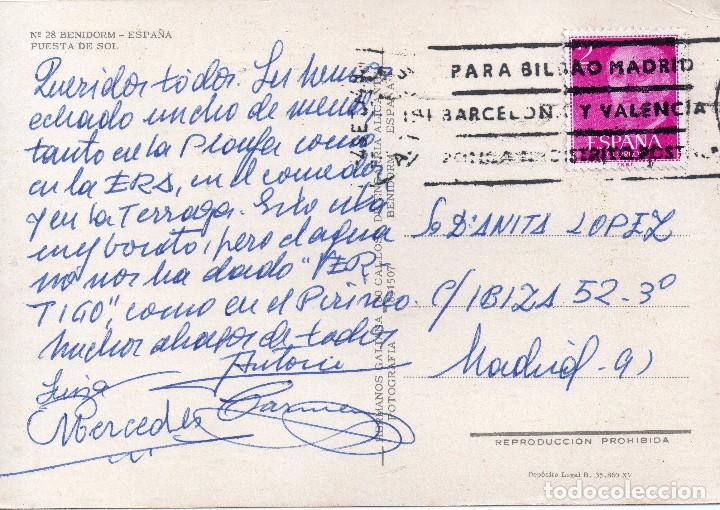 Nº 28 BENIDORM – ESPAÑA
PUESTA DE SOL
Queridos todos. Les hemos
echado mucho de menos
tanto en la
como
en la ERA, en el comedor
y en la Terraza. Esto esta
muy bonito, pero el agua
no nos ha dado "VER-
TIGO", como en el Pirineo.
Muchos abrazos de todos
Antonio
Luisa
Mercedes Carmen
HERMANOS GALIANA
FOTOGRAFIA
BENIDORM
ESPAÑA
PARA BILBAO MADRID
BARCELONA Y VALENCIA
PONGA DISTRITO POSTAL
2
ESPAÑA
CORREOS
Sª Dª ANITA LOPEZ
C/ IBIZA 52-3º
Madrid-9)
REPRODUCCION PROHIBIDA
Depósito Legal B. 35.860-XV
todocoleccion
todocoleccion.net